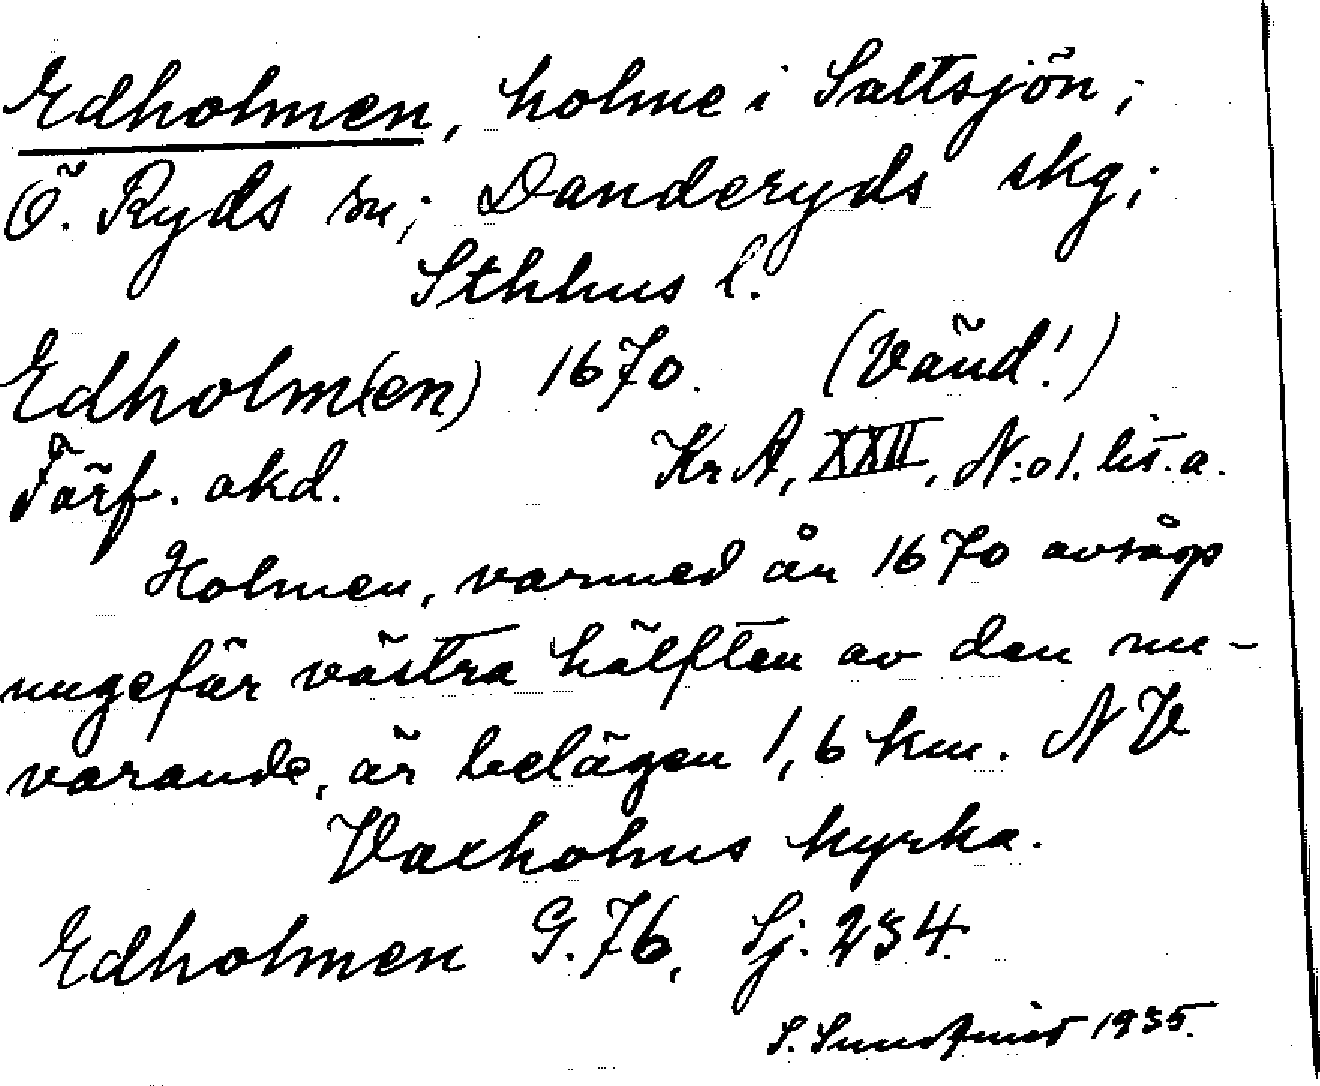 Edholmen, holme i Saltsjön;
Ö. Ryds sn; Danderyds skg;
Sthlms l.
Edholm(en) 1670. (Vänd!)
Färf. akd. KrA, XXII, N:o 1. lit. a.
Holmen, varmed år 1670 avsågs
ungefär västra hälften av den nu-
varande, är belägen 1,6 km. NV
Vaxholms kyrka.
Edholmen G. 76, Sj. 234.
S. Sundqvist 1935.